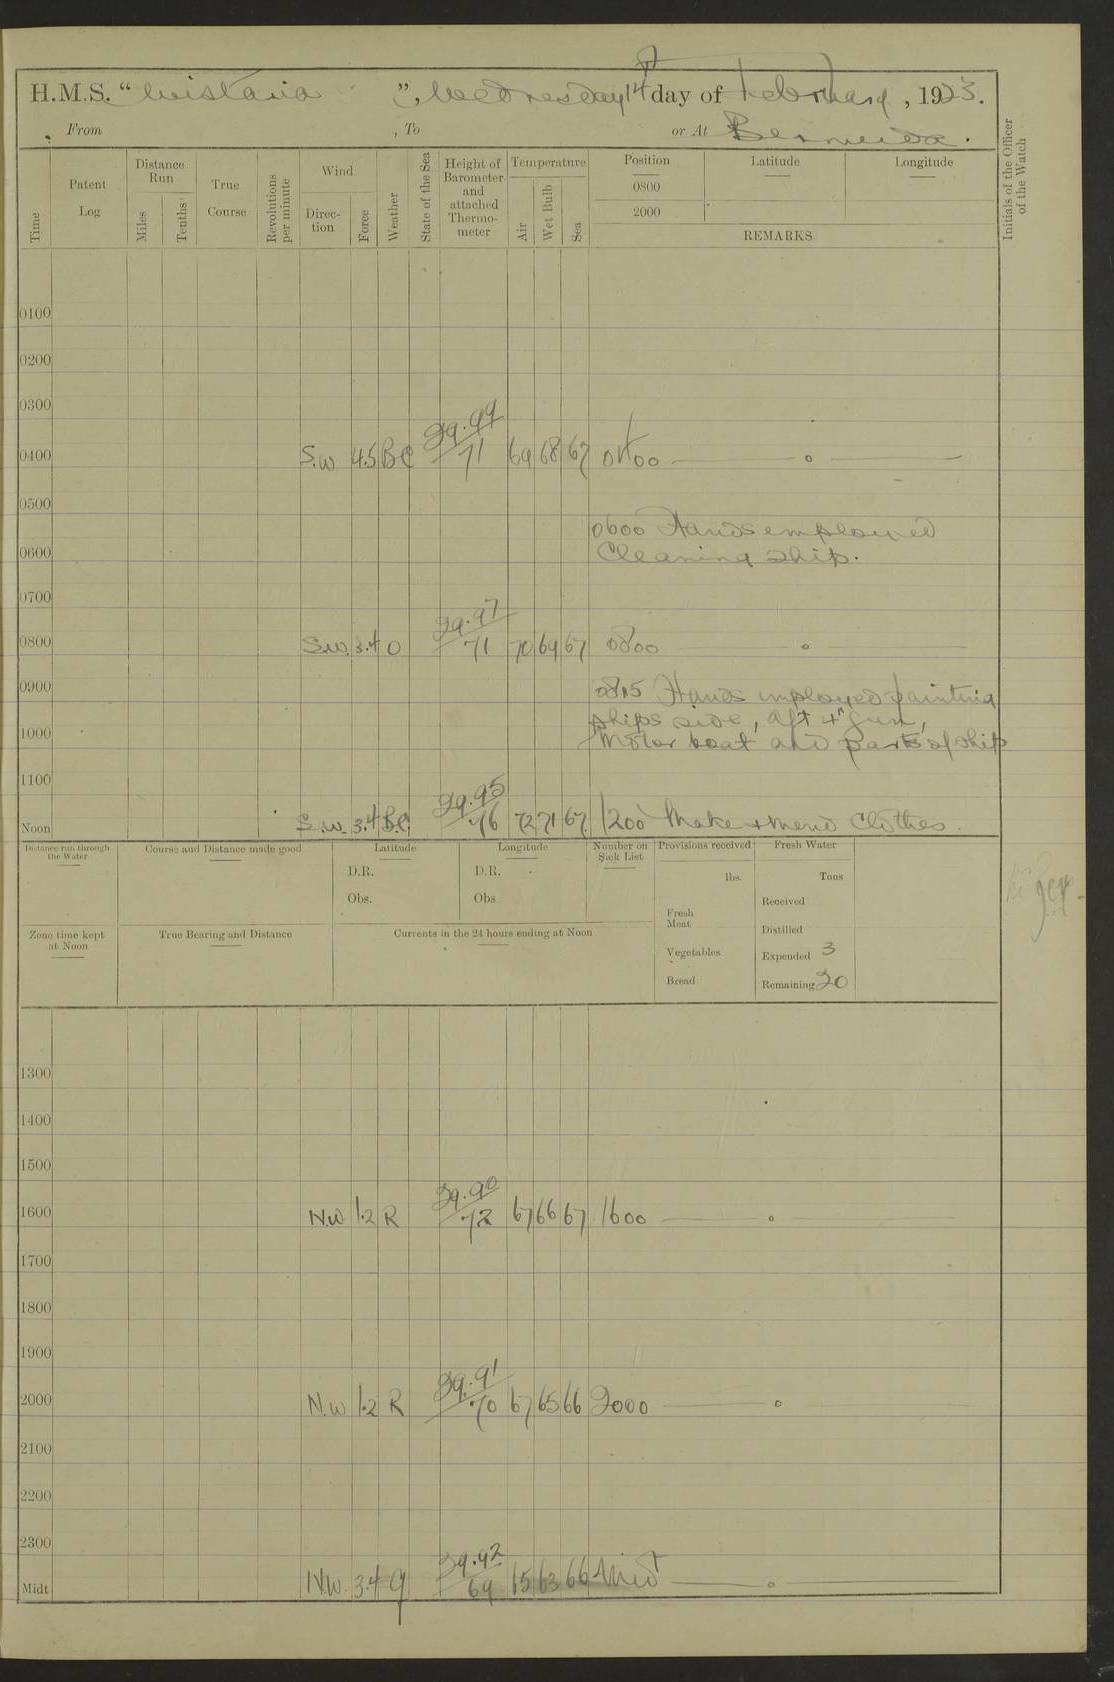 H.M.S. "Wistaria", Wednesday 14th day of February, 1923.
From , To or At Bermuda.
Time
Patent Log
Distance Run
Miles
Tenths
True Course
Revolutions per minute
Wind
Direction
Force
Weather
State of the Sea
Height of Barometer and attached Thermometer
Temperature
Air
Wet Bulb
Sea
Position
0800
2000
Latitude
Longitude
REMARKS
Initials of the Officer of the Watch
0100
0200
0300
0400 S.W 4.5 BC 29.99/71 69 68 67 0400 — o —
0500
0600 Hands employed
0600
Cleaning ship.
0700
0800 S.W. 3.4 O 29.97/71 70 69 67 0800 — o —
0900
0815 Hands employed painting
ships side, aft 4" gun,
1000
Motor boat and parts of ship
1100
Noon S.W. 3.4 B.C. 29.95/76 72 71 67 1200 Make & mend Clothes.
Distance run through the Water
Course and Distance made good
Latitude
D.R.
Obs.
Longitude
D.R.
Obs
Number on Sick List
Provisions received
lbs.
Fresh Meat
Vegetables
Bread
Fresh Water
Tons
Received
Distilled
Expended 3
Remaining 20
Zone time kept at Noon
True Bearing and Distance
Currents in the 24 hours ending at Noon
1300
1400
1500
1600 N.W 1.2 R 29.90/72 67 66 67 1600 — o —
1700
1800
1900
2000 N.W 1.2 R 29.91/70 67 65 66 2000 — o —
2100
2200
2300
Midt N.W. 3.4 q 29.92/69 65 63 66 Midt — o —